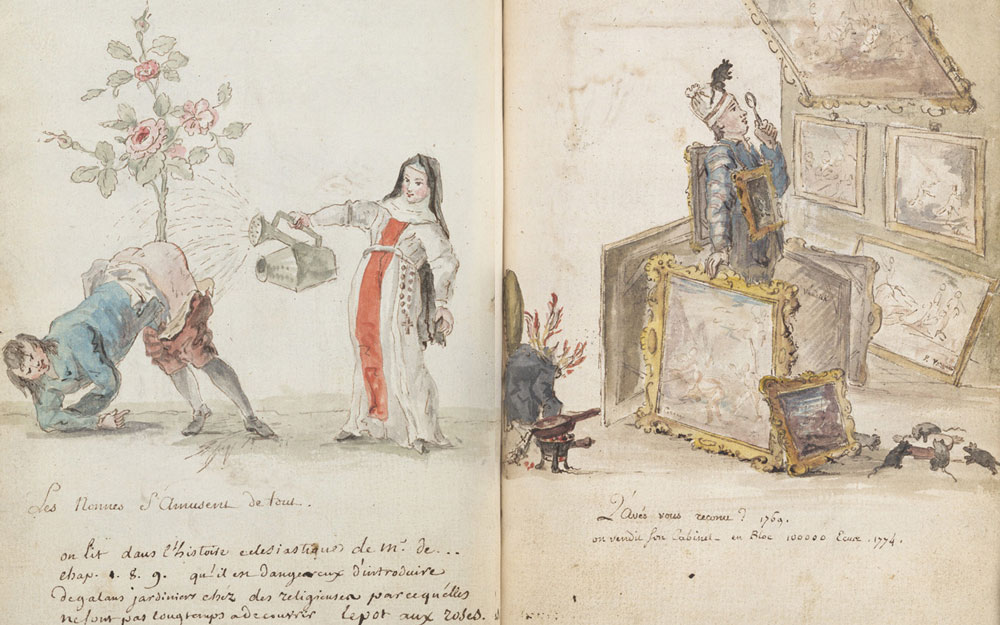 Les Nonnes s'Amusent de tout.
on lit dans l'histoire eclesiastique de mr. de...
chap. 1. 8. 9. qu'il en dangereux d'introduire
de galans jardiniers chéz des religieuses parcequ'elles
ne sont pas longtamps a decouvrir le pot aux roses.
L'avés vous reconu? 1769.
on vendit son Cabinet en Bloc 100000 Ecux. 1774.